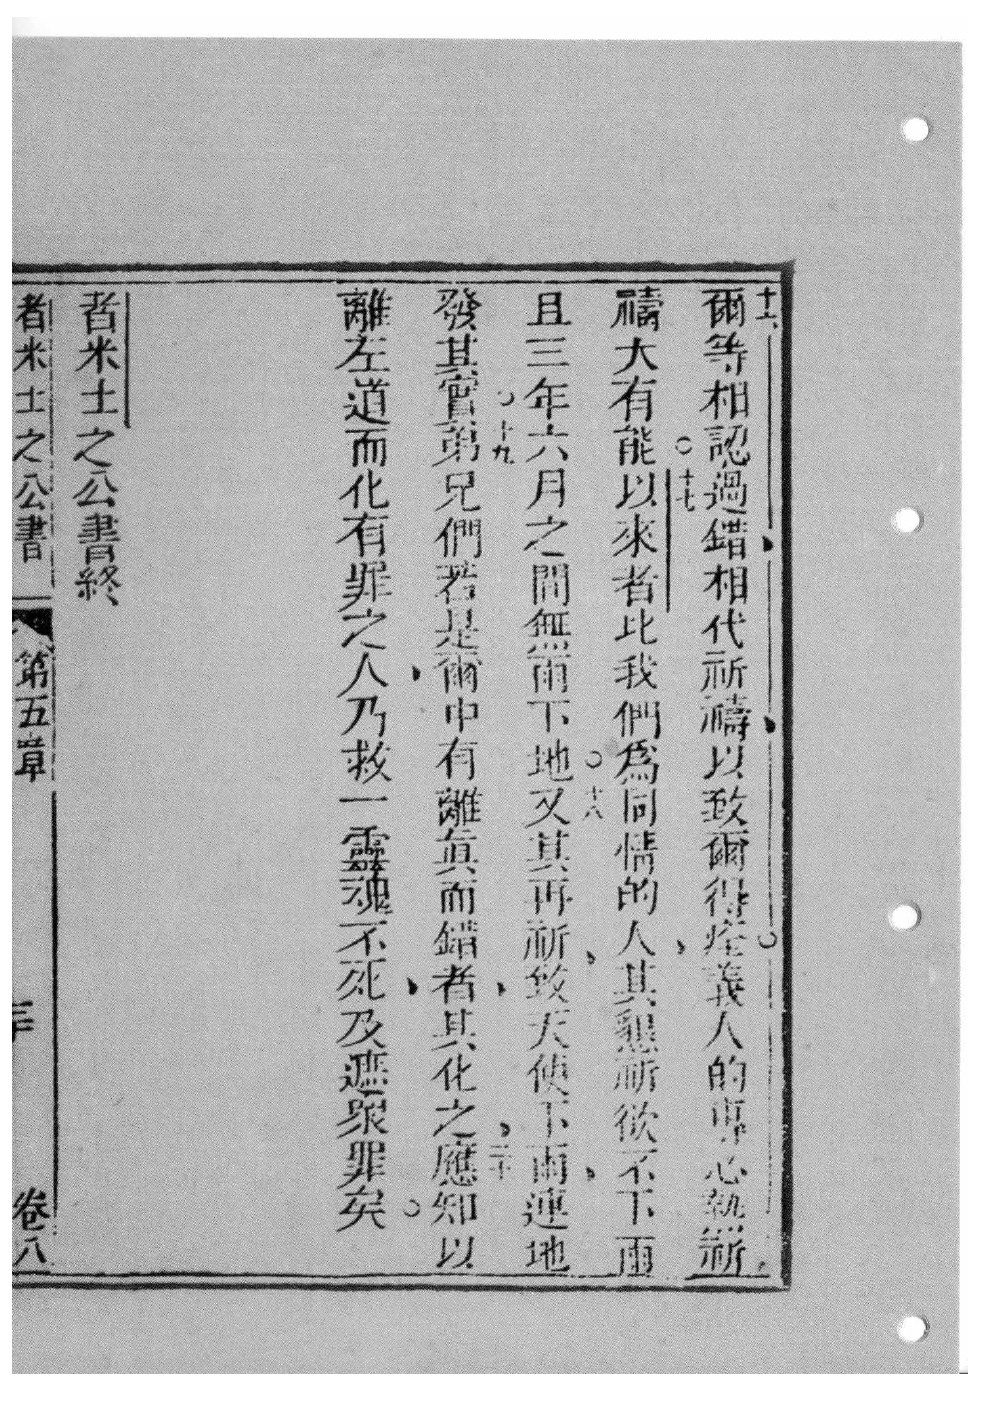 十六
爾等相認過錯相代祈禱以致爾得痊義人的專心熱祈
十七
禱大有能以來者比我們爲同情的人其懇祈欲不下雨
十八
且三年六月之間無雨下地又其再祈致天使下雨連地
十九 二十
發其實弟兄們若是爾中有離眞而錯者其化之應知以
離左道而化有罪之人乃救一靈魂不死及遮衆罪矣
者米士之公書終
者米士之公書 第五章 卷八